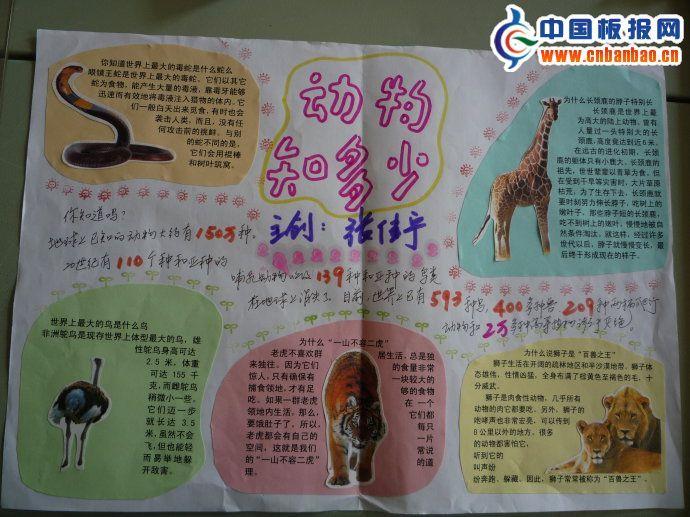 中国板报网
www.cnbanbao.cn
动物
知多少
主创：张佳宇
你知道世界上最大的毒蛇是什么蛇么
眼镜王蛇是世界上最大的毒蛇。它们以其它
蛇为食物，能产生大量的毒液，靠毒牙能够
迅速而有效地将毒液注入猎物的体内。它
们一般白天出来觅食，有时也会
袭击人类，而且，没有任
何攻击前的挑衅。与别
的蛇不同的是，
它们会用棍棒
和树叶筑窝。
为什么长颈鹿的脖子特别长
长颈鹿是世界上最
为高大的陆上动物。曾有
人量过一头特别大的长
颈鹿，高度竟达到近6米。
在远古的进化初期，长颈
鹿的躯体只有小鹿大。长颈鹿的
祖先，世世辈辈以青草为食。但
在受到干旱等灾害时，大片草原
枯荒，为了生存下去，长颈鹿就
要时刻努力伸长脖子，吃树上的
嫩叶子。那些脖子短的长颈鹿，
吃不到树上的嫩叶，慢慢地被自
然条件淘汰。就这样，经过许多
世代以后，脖子就慢慢变长，最
后终于形成现在的样子。
你知道吗？
地球上已知的动物大约有150万种。
20世纪有110个种和亚种的
哺乳动物以及139种和亚种的鸟类
在地球上消失了。目前，世界上已有593种鸟，400多种兽，209种两栖爬行
动物和2万多种高等植物濒于灭绝。
世界上最大的鸟是什么鸟
非洲鸵鸟是现存世界上体型最大的鸟，雄
性鸵鸟身高可达
2.5米，体重
可达155千
克，而雌鸵鸟
稍微小一些，
它们迈一步
就长达3.5
米，虽然不会
飞，但也能轻
而易举地躲
开敌害。
为什么“一山不容二虎”
老虎不喜欢群
来独往。因为它们
惊人，只有确保有
捕食领地，才有足
吃。如果一群老虎
领地内生活，那么，
要饿肚子了，所以，
老虎都会有自己的
空间，这就是我们
的“一山不容二虎”
理。
居生活，总是独
的食量非常
一块较大的
的够的食物
在一个
它们都
每只
一片
常说
的道
为什么说狮子是“百兽之王”
狮子生活在开阔的疏林地区和半沙漠地带，狮子体
态雄伟，性情凶猛，全身布满了棕黄色至褐色的毛，十
分威武。
狮子是肉食性动物，几乎所有
动物的肉它都要吃。另外，狮子的
咆哮声也非常宏亮，可以传到
8公里以外的地方，很多
的动物都害怕它，
听到它的
叫声纷
纷奔跑、躲藏，因此，狮子常常被称为“百兽之王”。